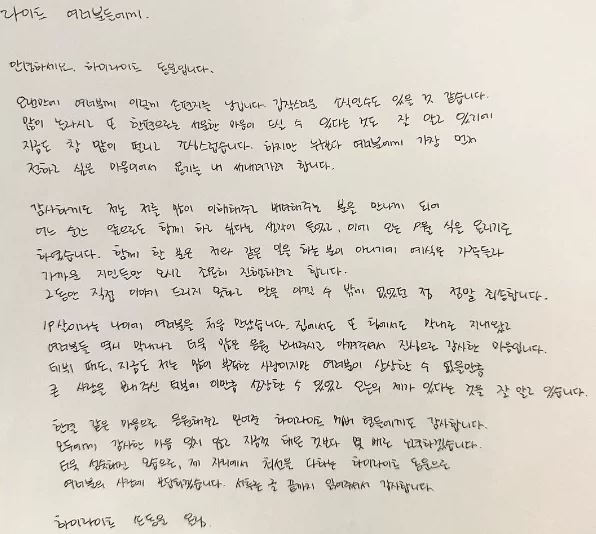 라이트 여러분들에게.
안녕하세요. 하이라이트 동운입니다.
오랜만에 여러분께 이렇게 손편지를 남깁니다. 갑작스러운 소식일수도 있을 것 같습니다.
많이 놀라시고 또 한편으로는 서운한 마음이 드실 수 있다는 것도 잘 알고 있기에
지금도 참 많이 떨리고 조심스럽습니다. 하지만 누구보다 여러분에게 가장 먼저
전하고 싶은 마음이어서 용기를 내 써내려가려 합니다.
감사하게도 저를 많이 이해해주고 배려해주는 분을 만나게 되어
어느 순간 앞으로도 함께 하고 싶다는 생각이 들었고, 이에 오는 9월 식을 올리기로
하였습니다. 함께 할 분은 저와 같은 일을 하는 분이 아니기에 예식은 가족들과
가까운 지인들만 모시고 조용히 진행하려고 합니다.
그동안 직접 이야기 드리지 못하고 말을 아낄 수 밖에 없었던 점 정말 죄송합니다.
19살이라는 나이에 여러분을 처음 만났습니다. 집에서도 또 팀에서도 막내로 지내왔고
여러분들 역시 막내라고 더욱 많은 응원 보내주시고 아껴주셔서 진심으로 감사한 마음입니다.
데뷔 때도, 지금도 저는 많이 부족한 사람이지만 여러분이 상상할 수 없을만큼
큰 사랑을 보내주신 덕분에 이만큼 성장할 수 있었고 오늘의 제가 있다는 것을 잘 알고 있습니다.
한결 같은 마음으로 응원해주고 믿어준 하이라이트 멤버 형들에게도 감사합니다.
모두에게 감사한 마음 잊지 않고 지금껏 해온 것보다 몇 배로 노력하겠습니다.
더욱 성숙해진 모습으로, 제 자리에서 최선을 다하는 하이라이트 동운으로
여러분의 사랑에 보답하겠습니다. 서툰 글 끝까지 읽어주셔서 감사합니다.
하이라이트 손동운 올림.